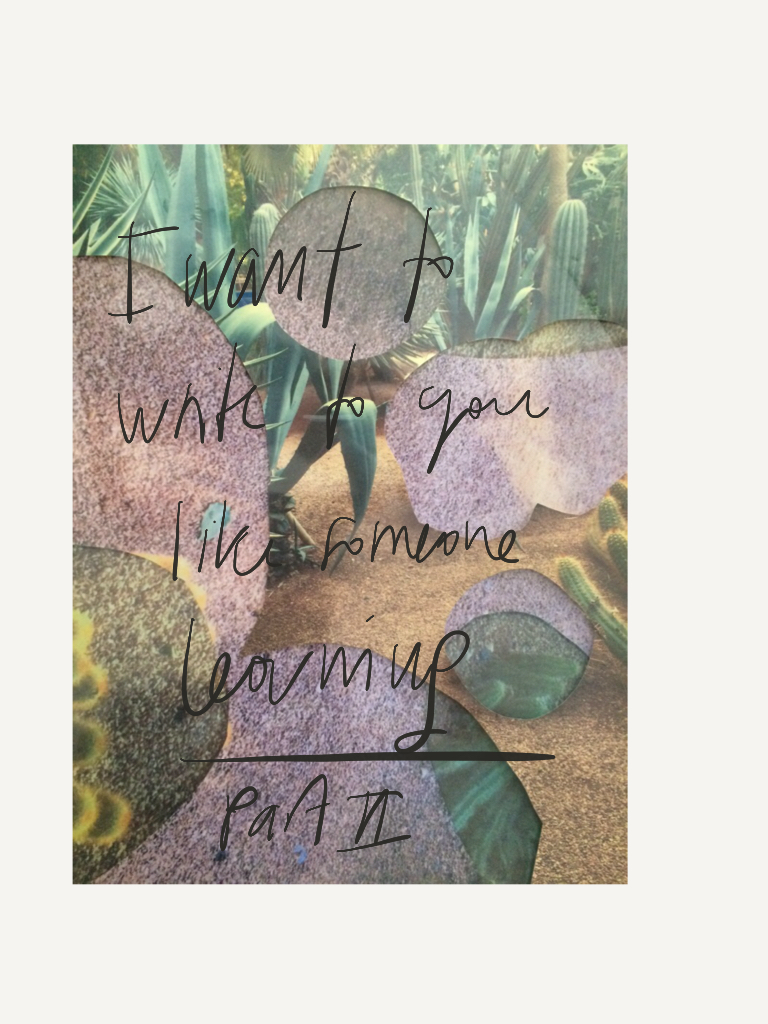 I want to
write to you
like someone
learning
Part II